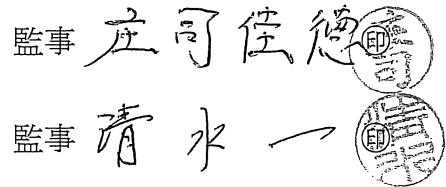 監事 庄司佳德 印
監事 清水一 印